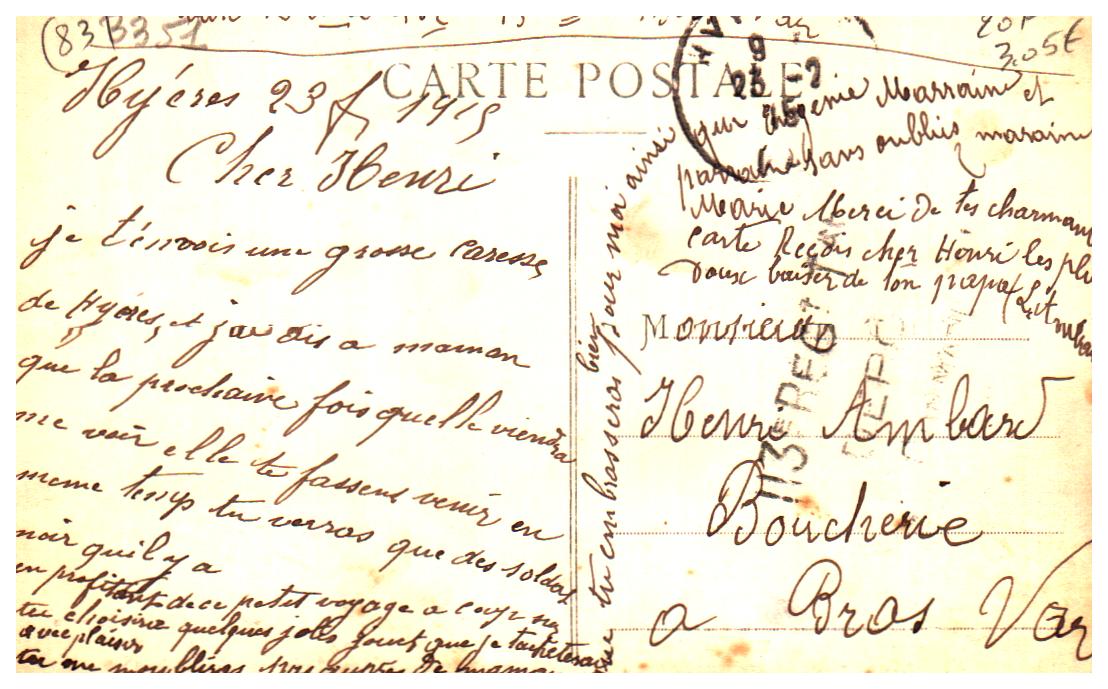 (83) B351
3.05€
CARTE POSTALE
Hyéres 23 f 1915
Cher Henri
je t'envois une grosse caresse
de Hyéres, et j'ai dis a maman
que la prochaine fois quelle viendra
me voir elle te fassens venir en
meme temp tu verras que des soldat
noir quil y a
en profitant de ce petit voyage a coup sur
tu choisira quelques jolis jouet que je t'acheterai
avec plaisir
tu embrasseras bien pour moi ainsi
que Eugenie Marraine et
parrain sans oublies maraine
Marie Merci De tes charmant
carte Reçois cher Henri les plu
doux baiser de ton papa
Monsieur
Henri Ambard
Boucherie
a Bras Var
9
23 -2
15
113E REGt
DEPOT